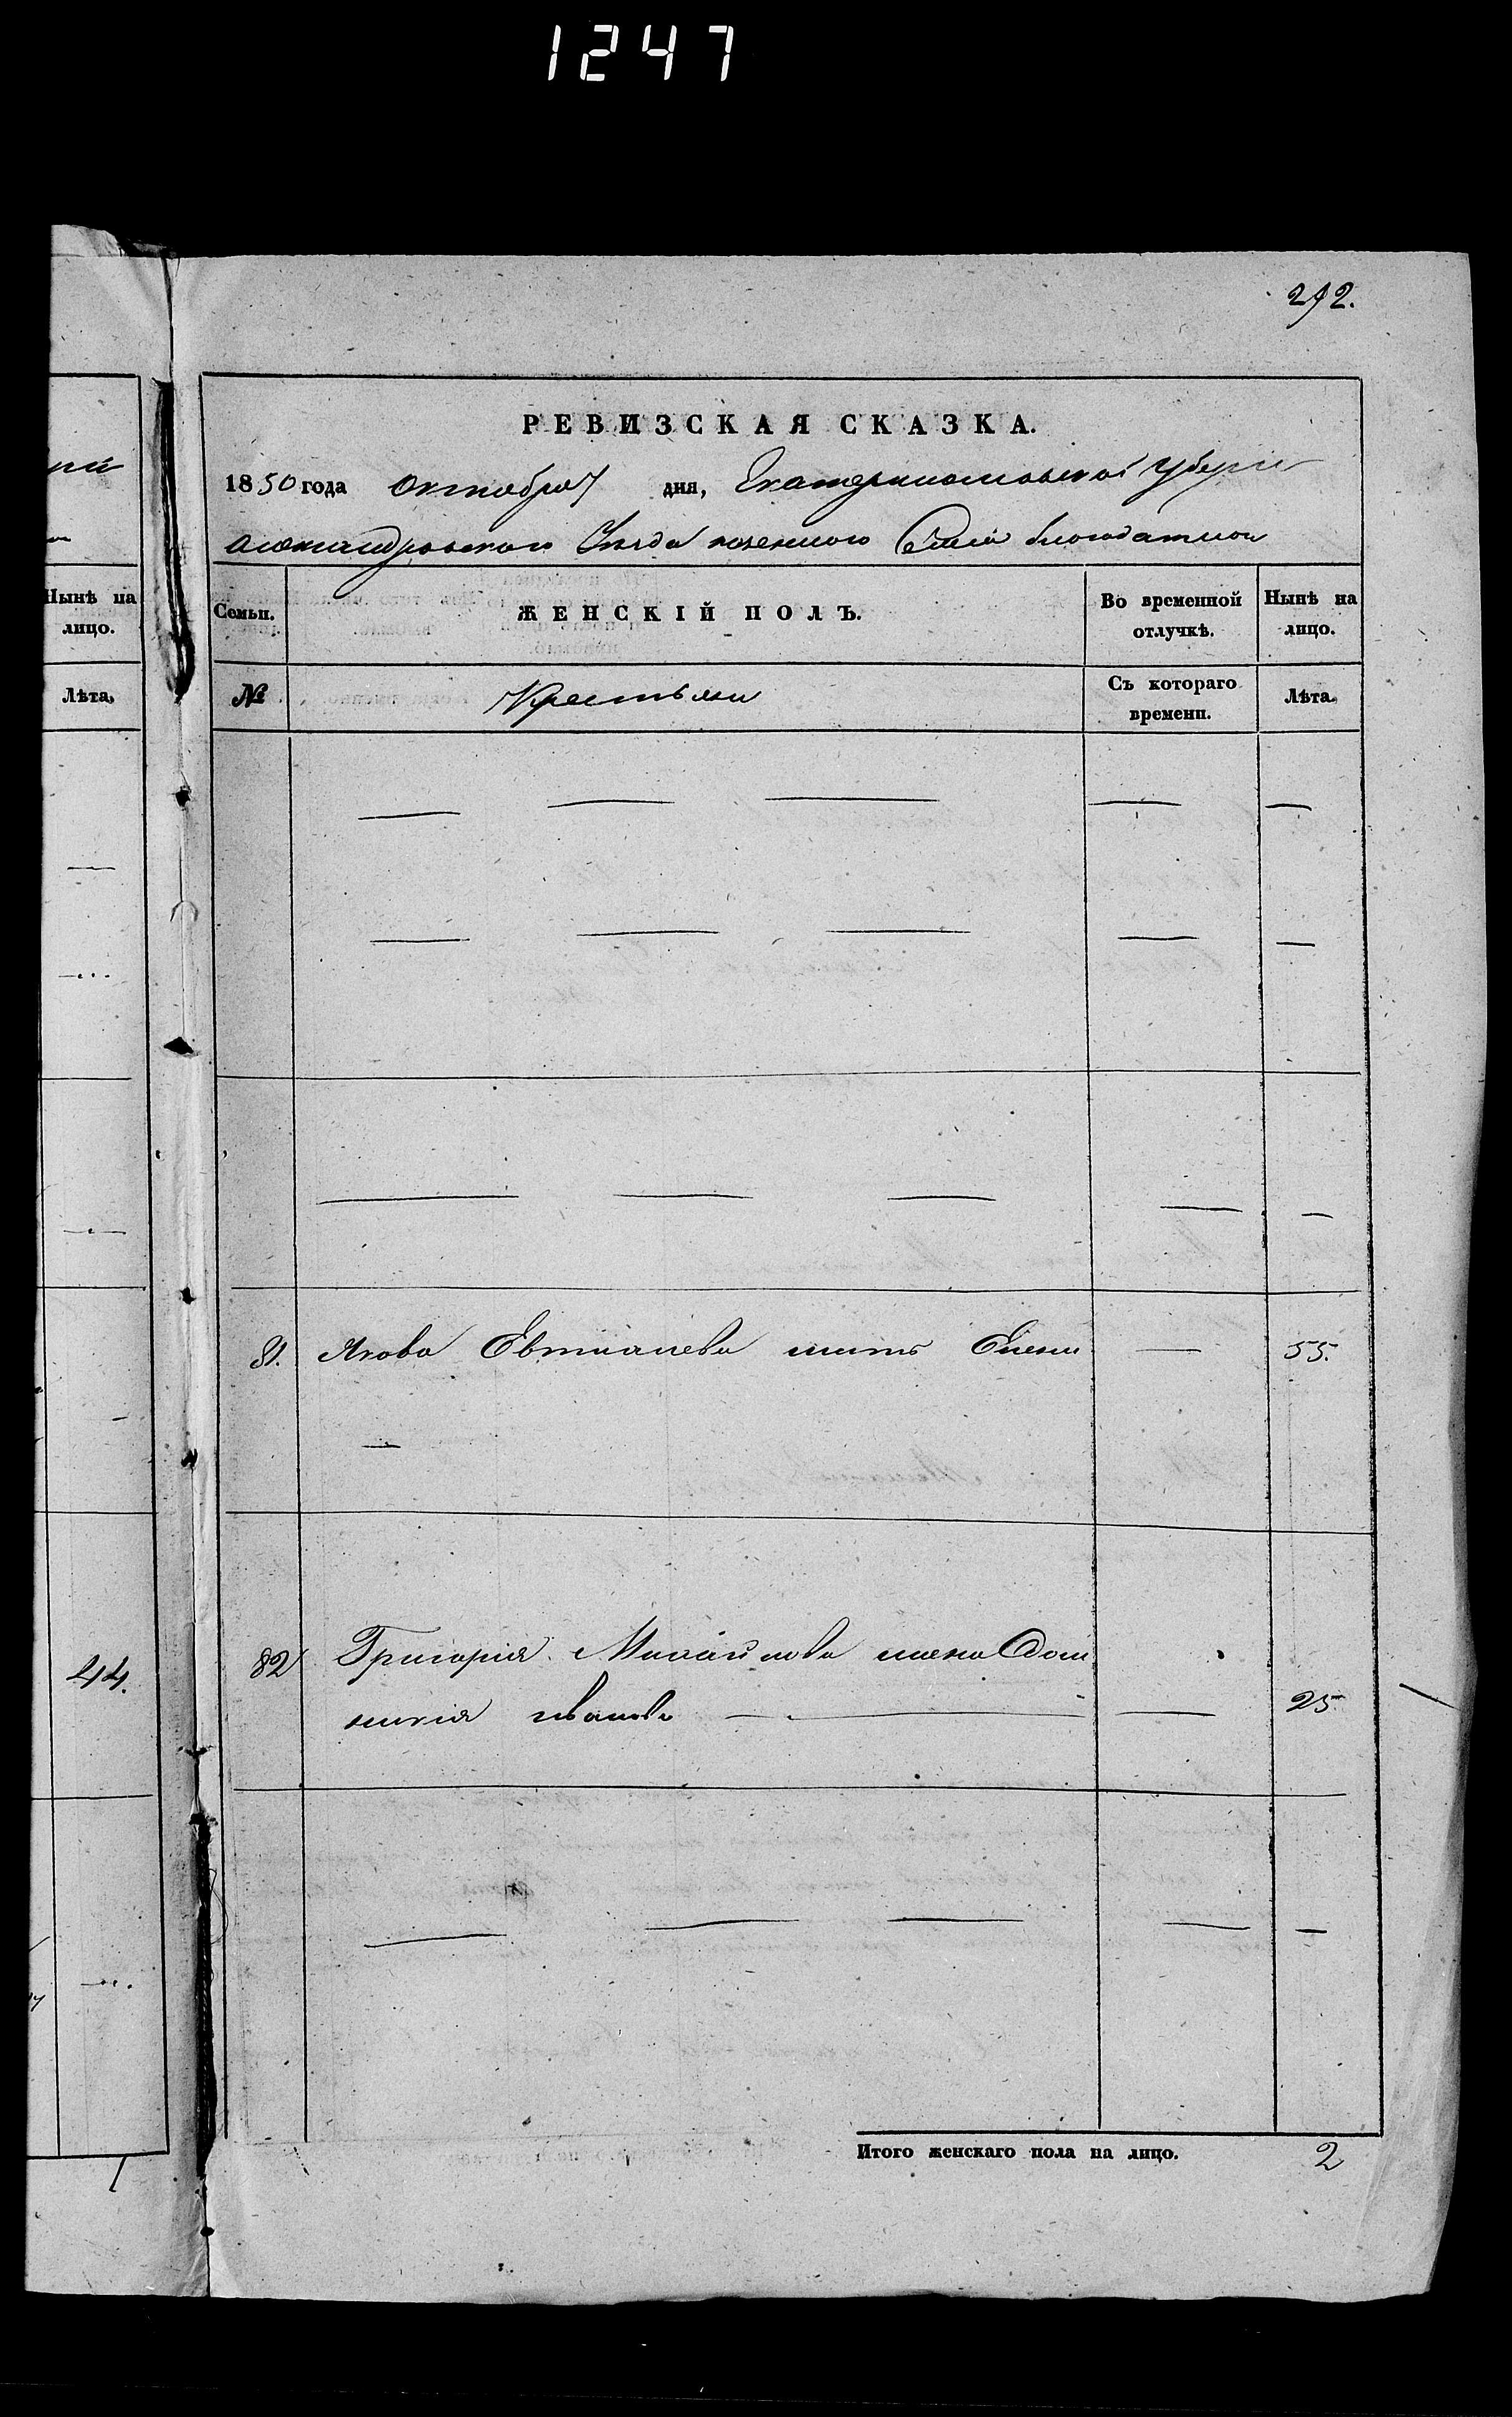 1247
292.
РЕВИЗСКАЯ СКАЗКА.
1850 года Октября дня, Екатеринославской Губерни
Александровского Уезда казенного Села благодатнои
Нынѣ на
лицо.
Лѣта.
44.
Семьи.
ЖЕНСКІЙ ПОЛЪ.
Во временной
отлучкѣ.
Нынѣ на
лицо.
№
Крестьяни
Съ котораго
времени.
Лѣта.
81. Якова Евтихиева мать Елена — 55.
82 Григория Михайлова жена Дом
никия иванова — 25
Итого женскаго пола на лицо. 2